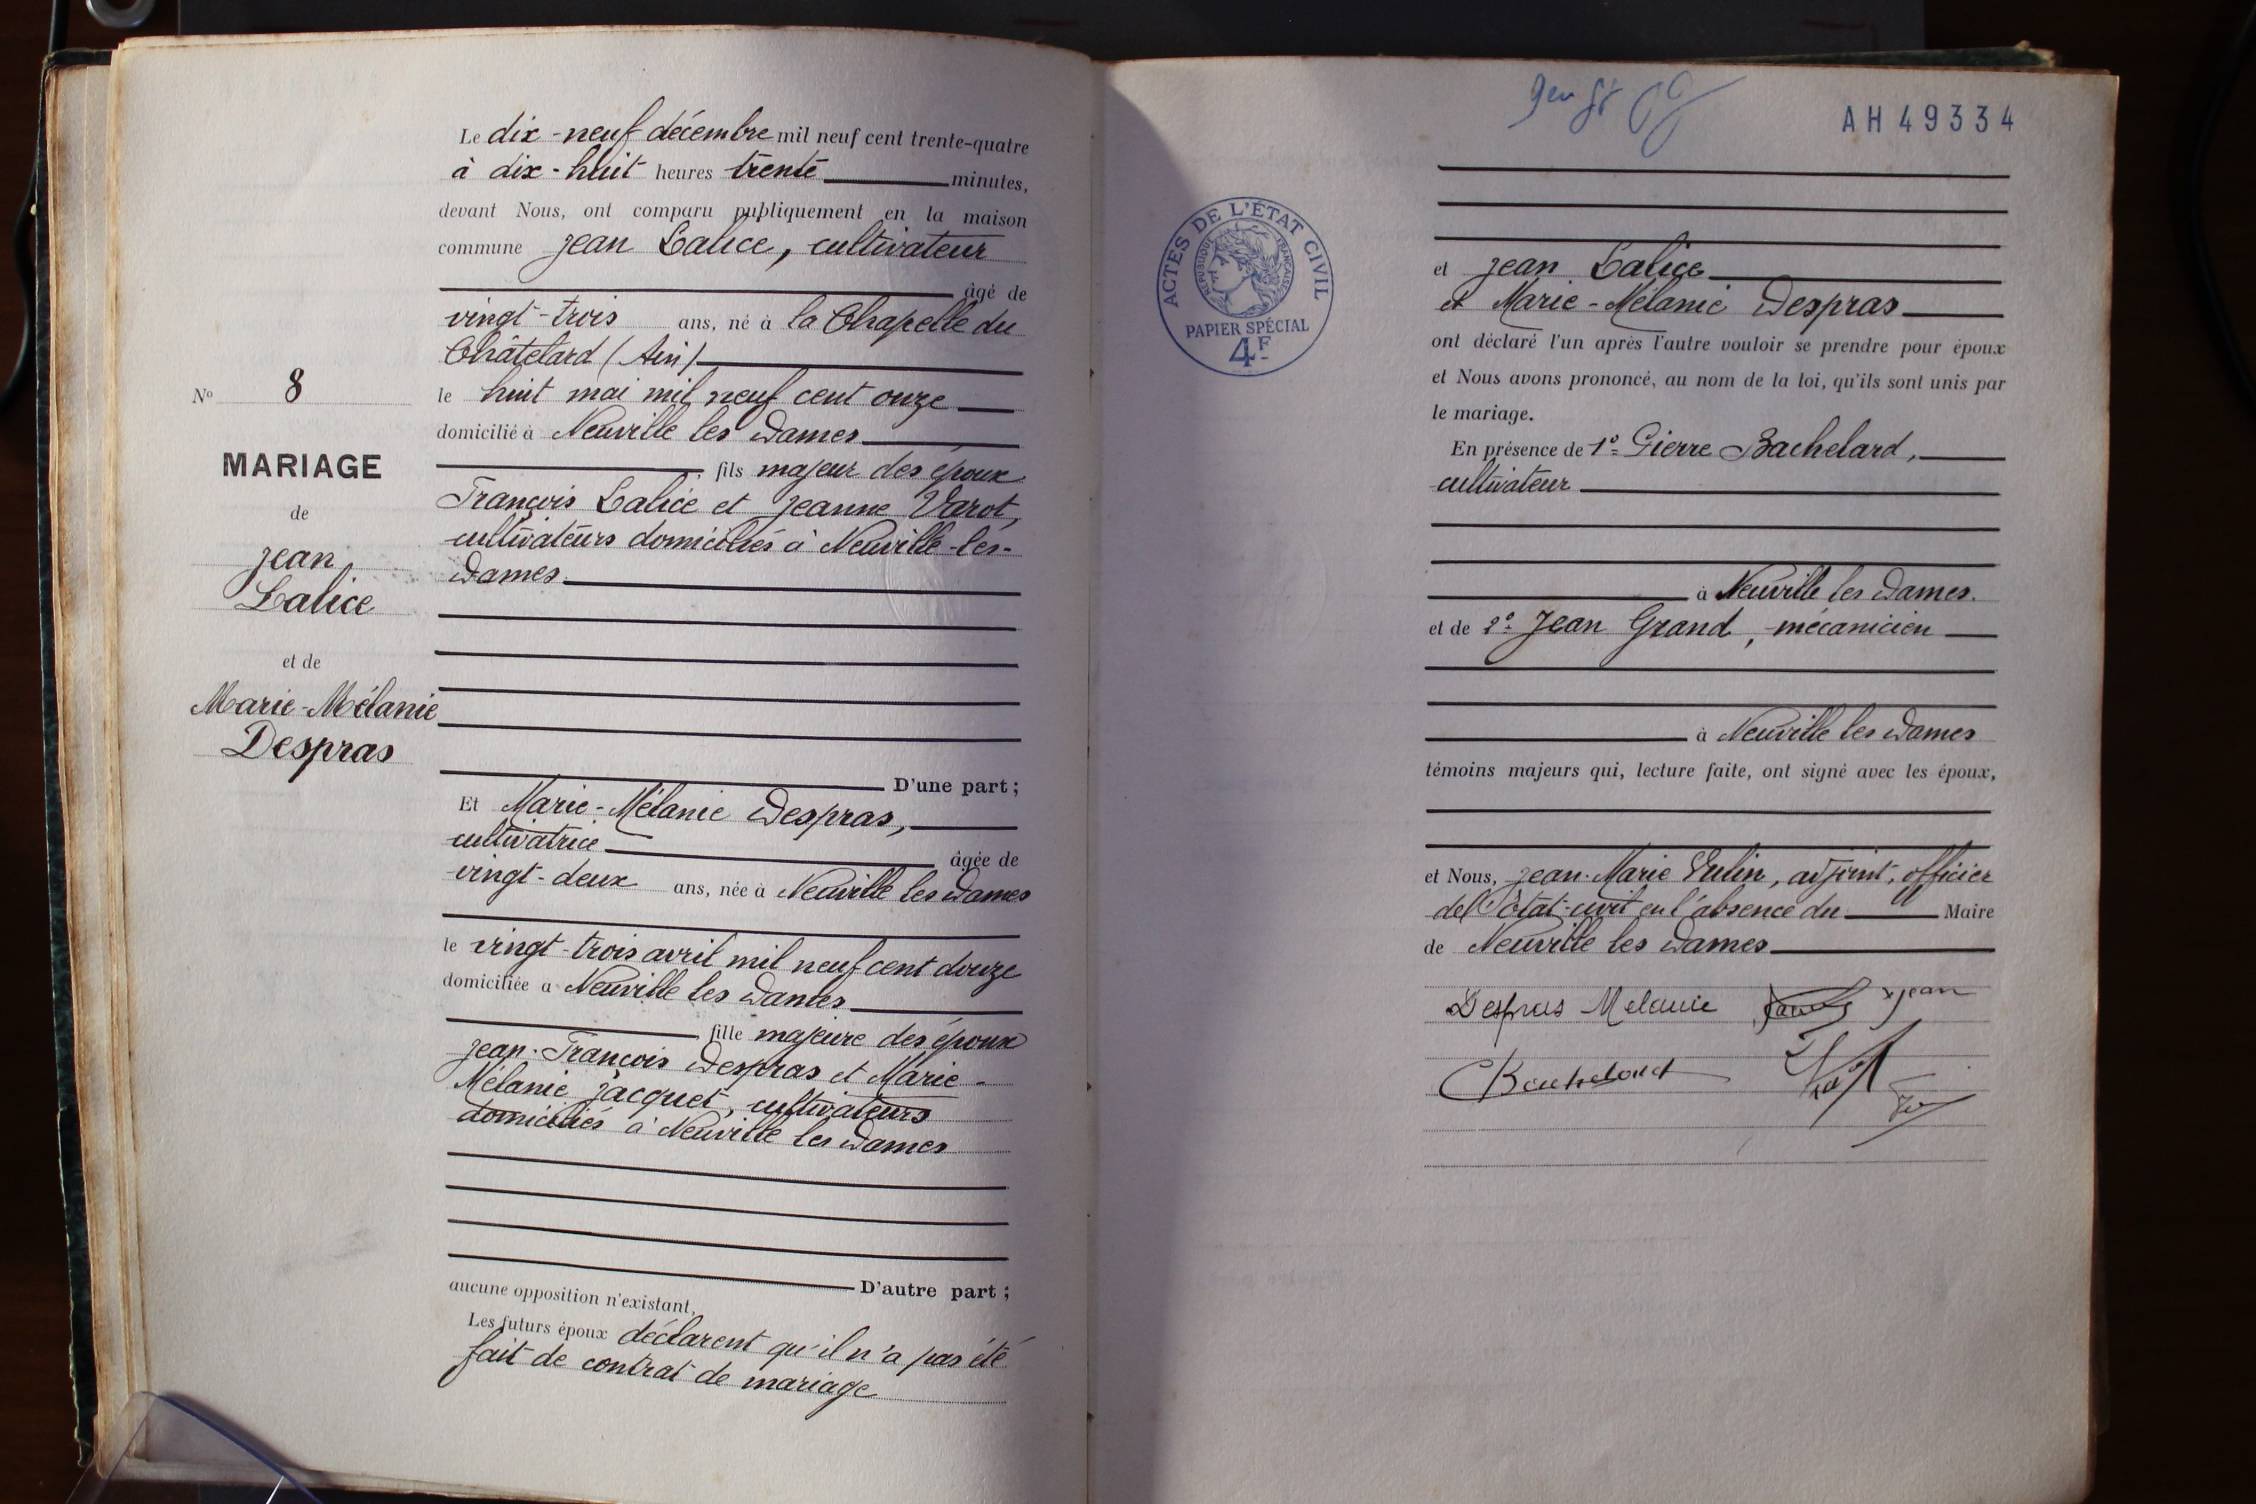 Le dix-neuf décembre mil neuf cent trente-quatre
à dix-huit heures trente minutes,
devant Nous, ont comparu publiquement en la maison
commune Jean Lalice, cultivateur
âgé de
vingt-trois ans, né à la Chapelle du
Châtelard (Ain)
le huit mai mil neuf cent onze
domicilié à Neuville les Dames
fils majeur des époux
François Lalice et Jeanne Varot,
cultivateurs domiciliés à Neuville-les-
Dames
D'une part ;
Et Marie-Mélanie Despras,
cultivatrice âgée de
vingt-deux ans, née à Neuville les Dames
le vingt-trois avril mil neuf cent douze
domiciliée à Neuville les Dames
fille majeure des époux
Jean-François Despras et Marie-
Mélanie Jacquet, cultivateurs
domiciliés à Neuville les Dames
D'autre part ;
aucune opposition n'existant,
Les futurs époux déclarent qu'il n'a pas été
fait de contrat de mariage
No 8
MARIAGE
de
Jean
Lalice
et de
Marie-Mélanie
Despras
AH 49334
ACTES DE L'ÉTAT CIVIL
RÉPUBLIQUE FRANÇAISE
PAPIER SPÉCIAL
4F
et Jean Lalice
et Marie-Mélanie Despras
ont déclaré l'un après l'autre vouloir se prendre pour époux
et Nous avons prononcé, au nom de la loi, qu'ils sont unis par
le mariage.
En présence de 1º Pierre Bachelard,
cultivateur
à Neuville les Dames.
et de 2º Jean Grand, mécanicien
à Neuville les Dames
témoins majeurs qui, lecture faite, ont signé avec les époux,
et Nous, Jean-Marie adjoint, officier
de l'état-civil en l'absence du Maire
de Neuville les Dames
Despras Melanie Jean